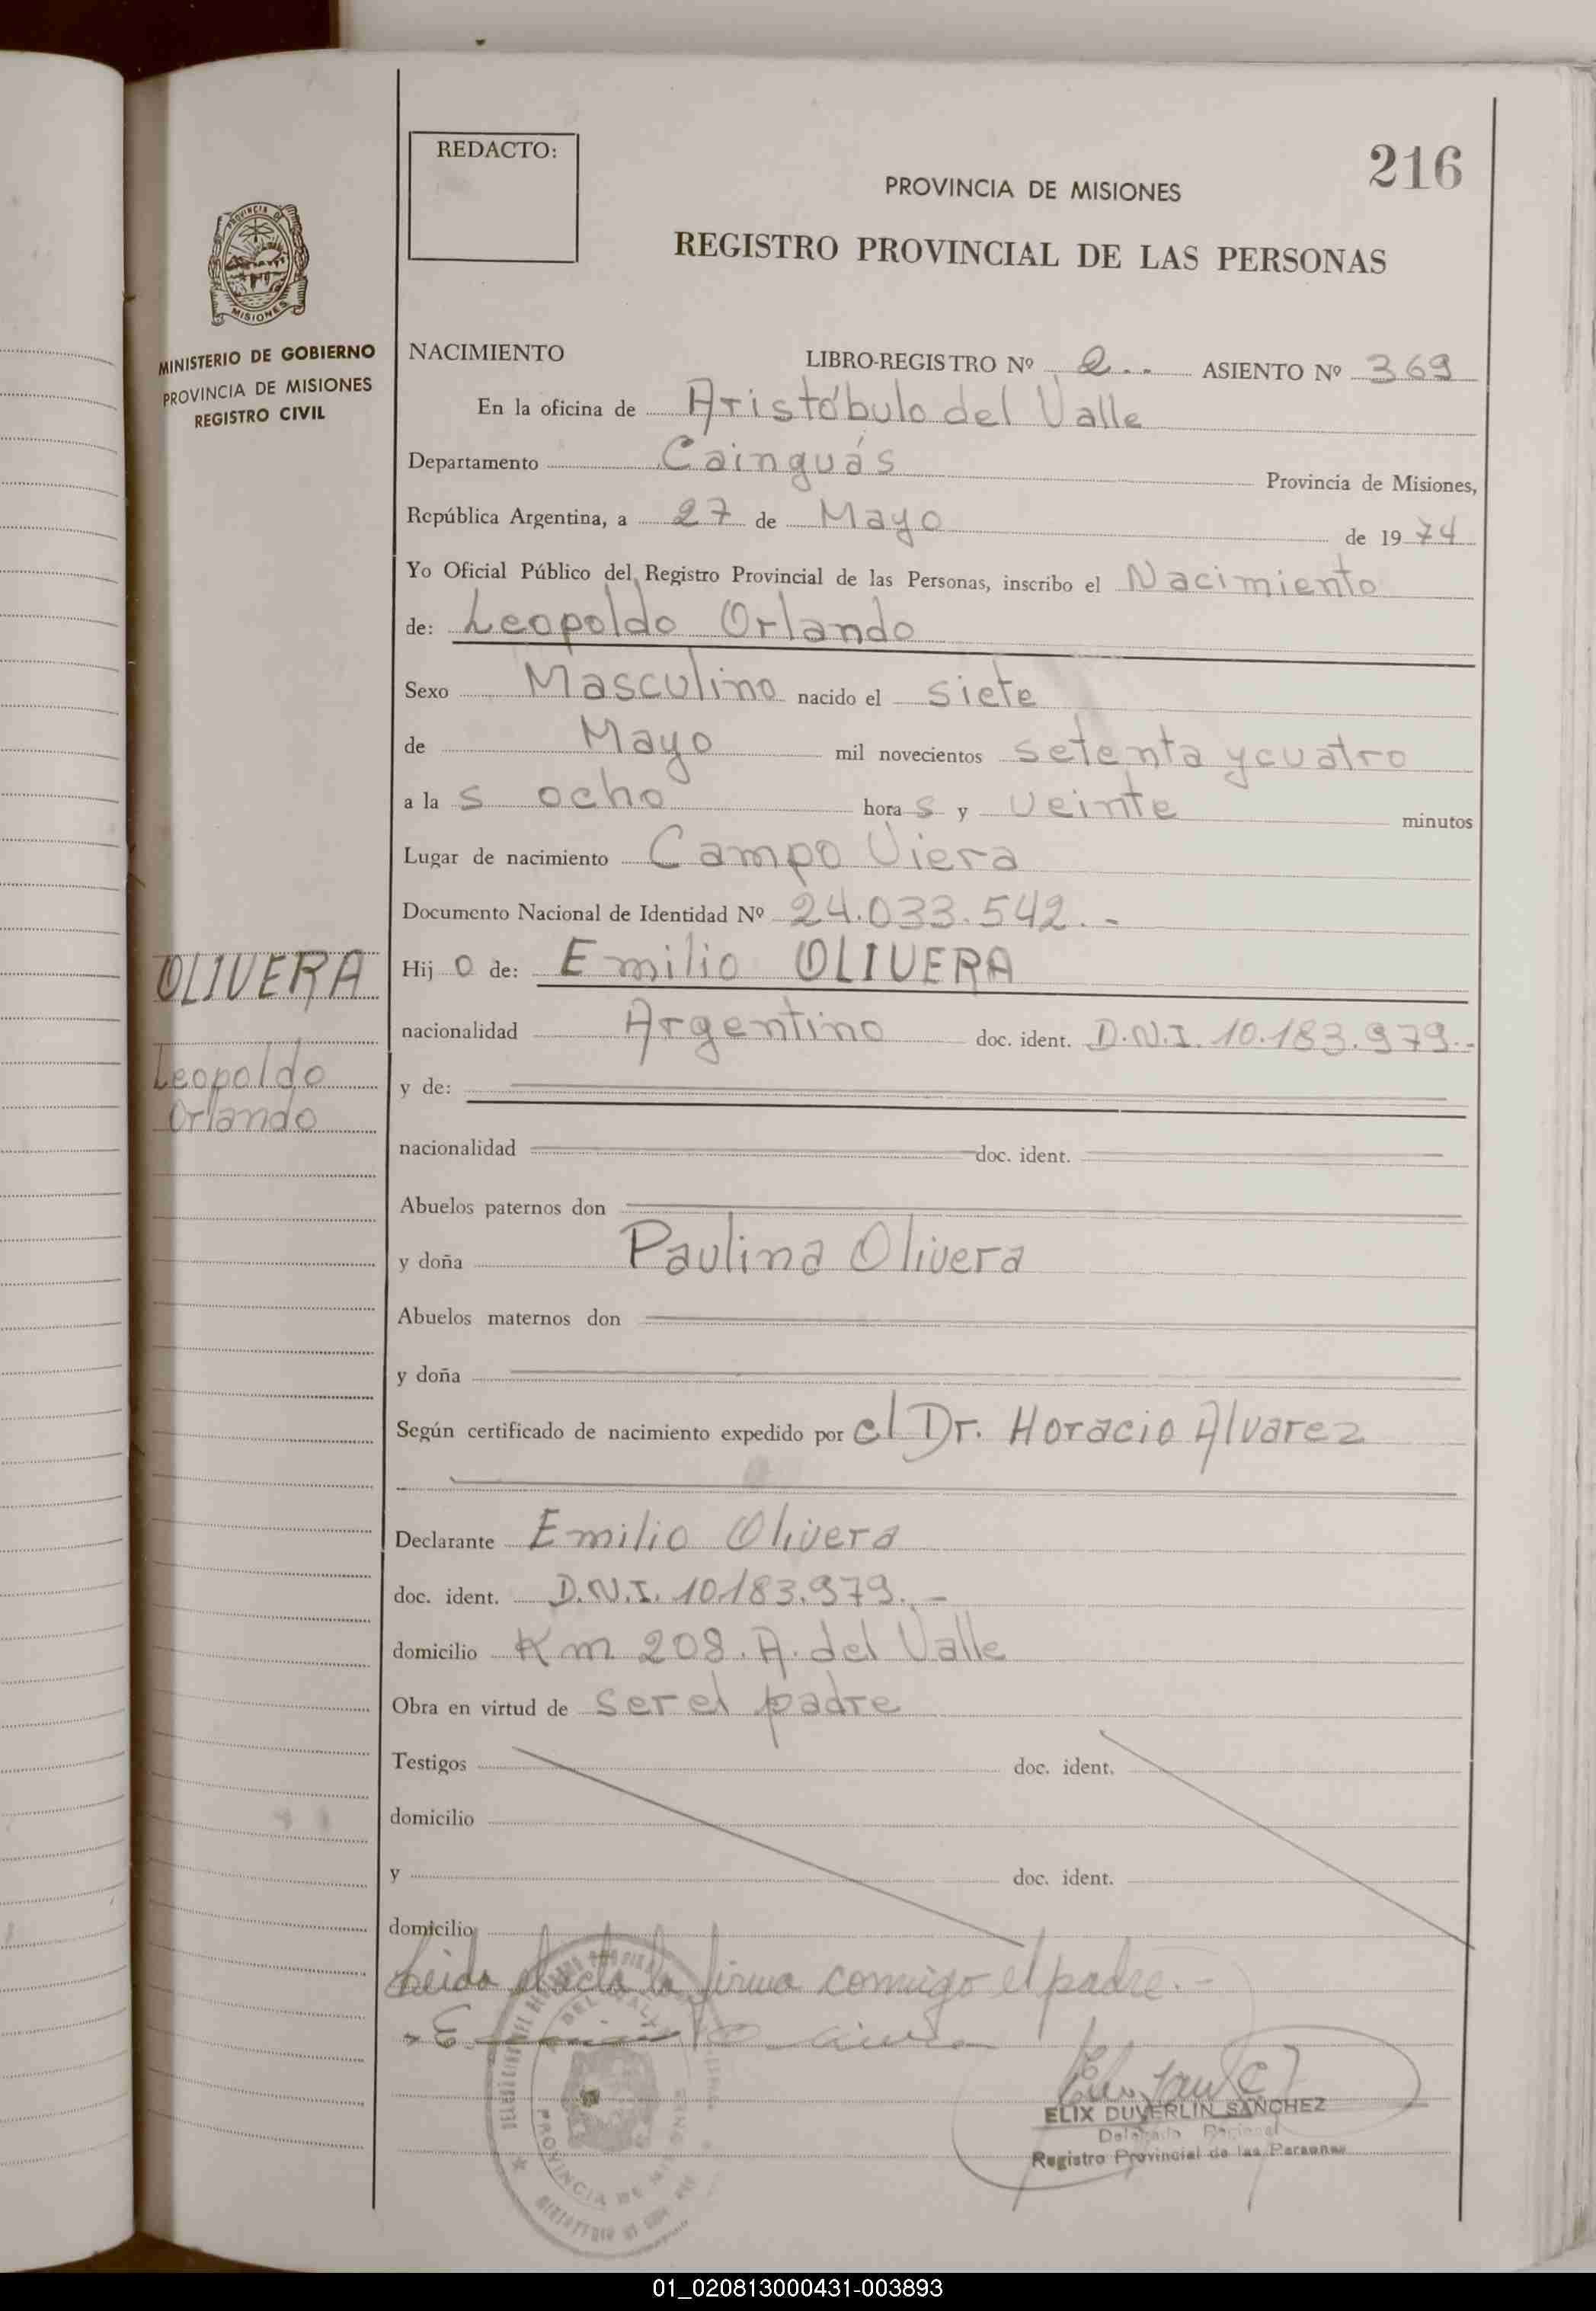 216
REDACTO:
PROVINCIA DE MISIONES
REGISTRO PROVINCIAL DE LAS PERSONAS
MISIONES
MINISTERIO DE GOBIERNO
PROVINCIA DE MISIONES
REGISTRO CIVIL
NACIMIENTO LIBRO-REGISTRO Nº 2.. ASIENTO Nº 369
En la oficina de Aristóbulo del Valle
Departamento Cainguás Provincia de Misiones,
República Argentina, a 27 de Mayo de 1974
Yo Oficial Público del Registro Provincial de las Personas, inscribo el Nacimiento
de: Leopoldo Orlando
Sexo Masculino nacido el siete
de Mayo mil novecientos setenta y cuatro
a la s ocho hora s y veinte minutos
Lugar de nacimiento Campo Viera
Documento Nacional de Identidad Nº 24.033.542.-
OLIVERA
Leopoldo
Orlando
Hij o de: Emilio OLIVERA
nacionalidad Argentino doc. ident. D.N.I. 10.183.979.-
y de:
nacionalidad doc. ident.
Abuelos paternos don
y doña Paulina Olivera
Abuelos maternos don
y doña
Según certificado de nacimiento expedido por el Dr. Horacio Alvarez
Declarante Emilio Olivera
doc. ident. D.N.I. 10.183.979.-
domicilio Km 208. A. del Valle
Obra en virtud de ser el padre
Testigos doc. ident.
domicilio
y doc. ident.
domicilio
Leida el acta la firma conmigo el padre.-
ELIX DUVERLIN SANCHEZ
Registro Provincial de las Personas
PROVINCIA DE
01_020813000431-003893